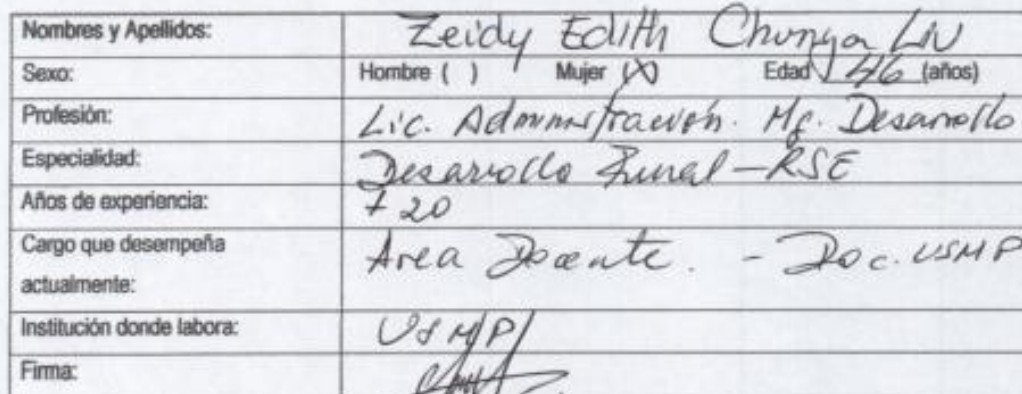 Nombres y Apellidos: Zeidy Edith Chunga Liu
Sexo: Hombre ( ) Mujer (X) Edad 46 (años)
Profesión: Lic. Administración. Mg. Desarrollo
Especialidad: Desarrollo Rural - RSE
Años de experiencia: + 20
Cargo que desempeña Area Docente. - Doc. USMP
actualmente:
Institución donde labora: USMP
Firma: